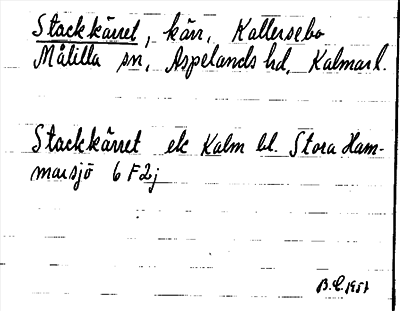 Stackkärret, kärr, Kallersebo
Målilla sn, Aspelands hd, Kalmar l.
Stackkärret ek Kalm bl. Stora Ham-
marsjö 6F2j
B.L. 1957